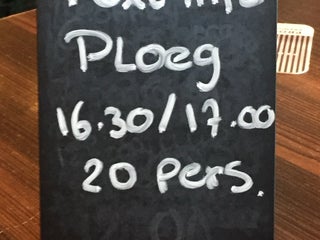 Ploeg
16.30/17.00
20 Pers.